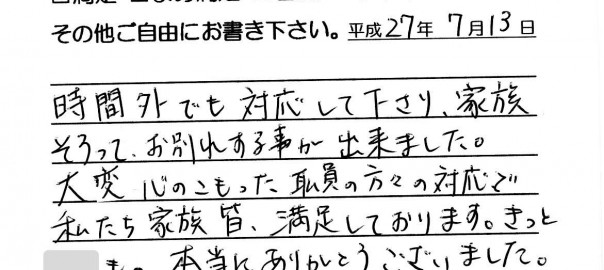 その他ご自由にお書き下さい。平成27年 7月13日
時間外でも対応して下さり、家族
そろって、お別れする事が出来ました。
大変 心のこもった 職員の方々の対応で
私たち家族皆、満足しております。きっと
も。本当にありがとうございました。